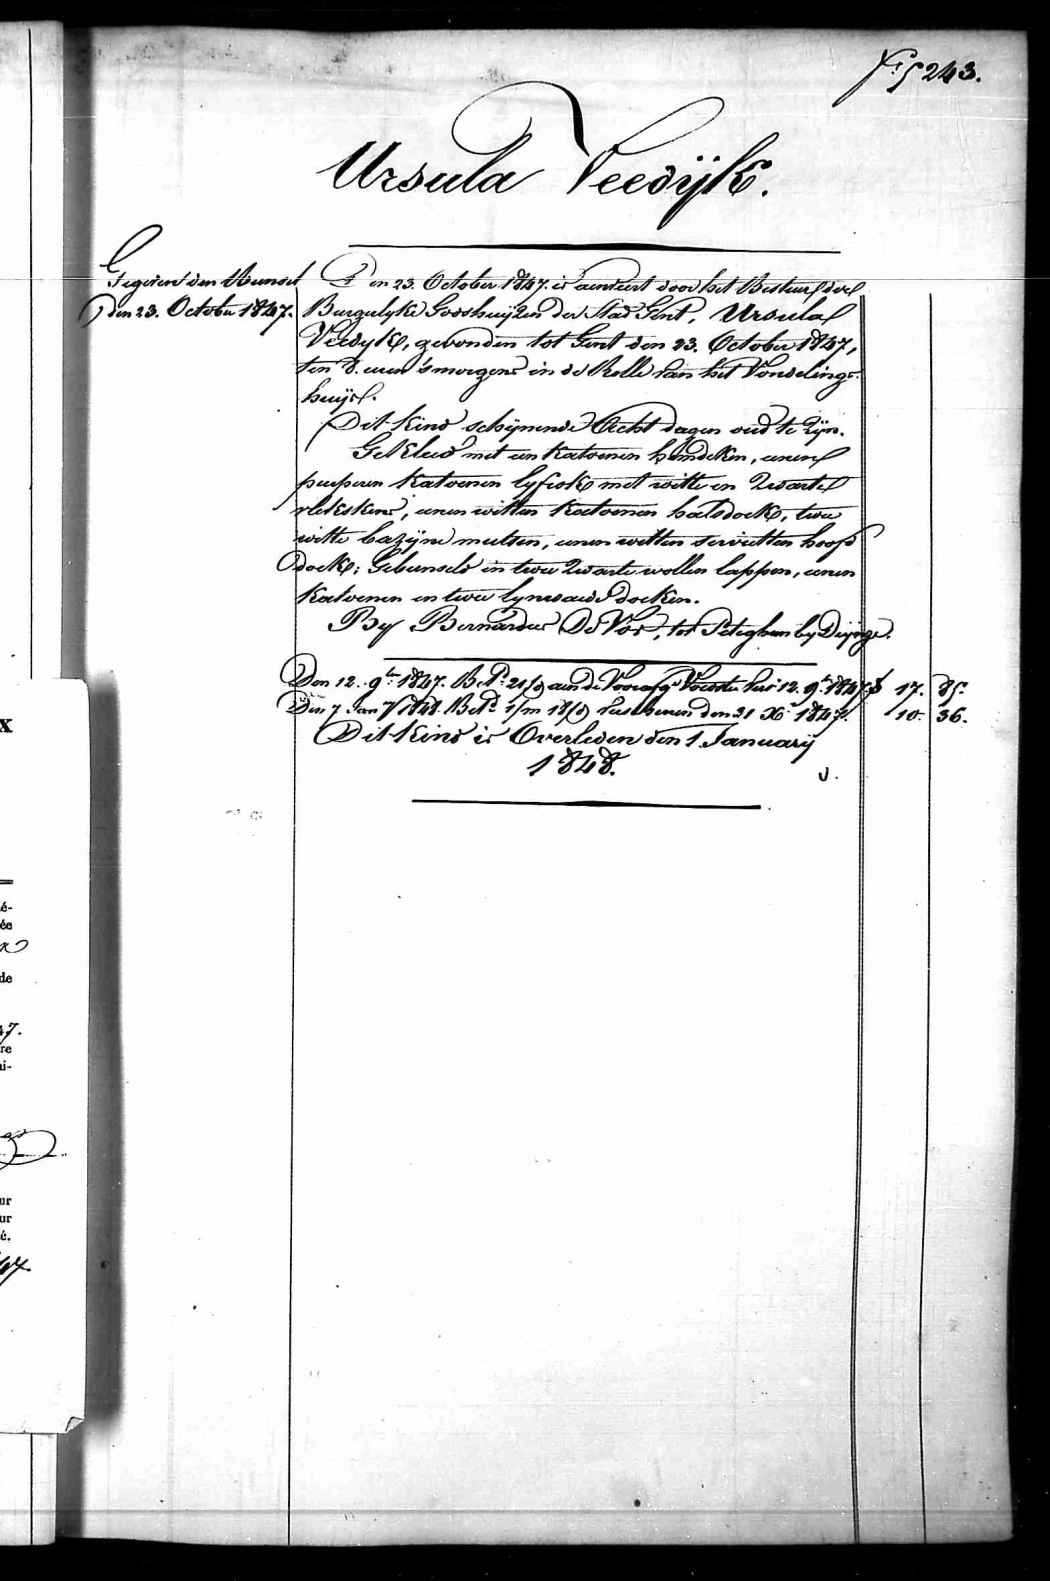 F° 5243.
Ursula Veedijk.
Gegeven den Bunsel
den 23. October 1847.
Den 23. October 1847. is aenveert door het Bestuer der
Burgulyke Godshuijzen der Stad Gent, Ursula
Veedyk, gevonden tot Gent den 23. October 1847,
ten 8. uren 's morgens in de Rolle van het Vondeling-
huijs.
Dit kind schijnende Acht dagen oud te zijn.
Gekleed met een katoenen hemdeken, eenen
purperen katoenen lyfrok met witte en Zwarte
vlekskens, eenen witten katoenen halsdoek, twee
witte bazijne mutsen, eenen witten servietten hoofd
doek; Gebunseld in twee Zwarte wollen lappen, eenen
katoenen en twee lynwaede doeken.
By Bernardus De Vos, tot Peteghem by Deynze.
Den 12. 9ber 1847. Bet. 21/d aen de Voorafge Voedster tur 12. 9r 1847 $ 17. 85.
Den 7 Jan 1848. Betd 1/m 18/d verschenen den 31 Xr 1847. 10. 36.
Dit kind is Overleden den 1. January
1848.
X
é-
ée
de
47.
re
ni-
ur
ur
é.
47